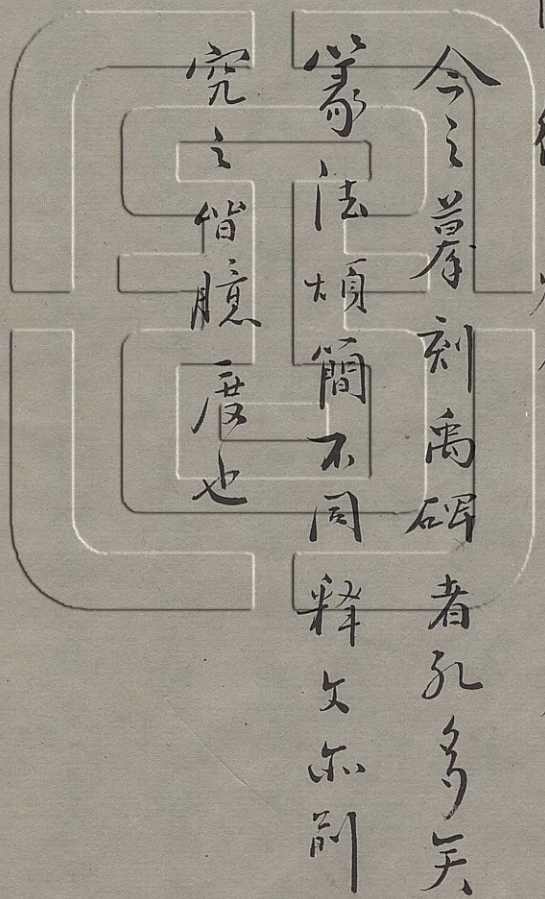 今之摹刻禹碑者孔多矣
篆法煩簡不同釋文亦別
究之皆臆度也